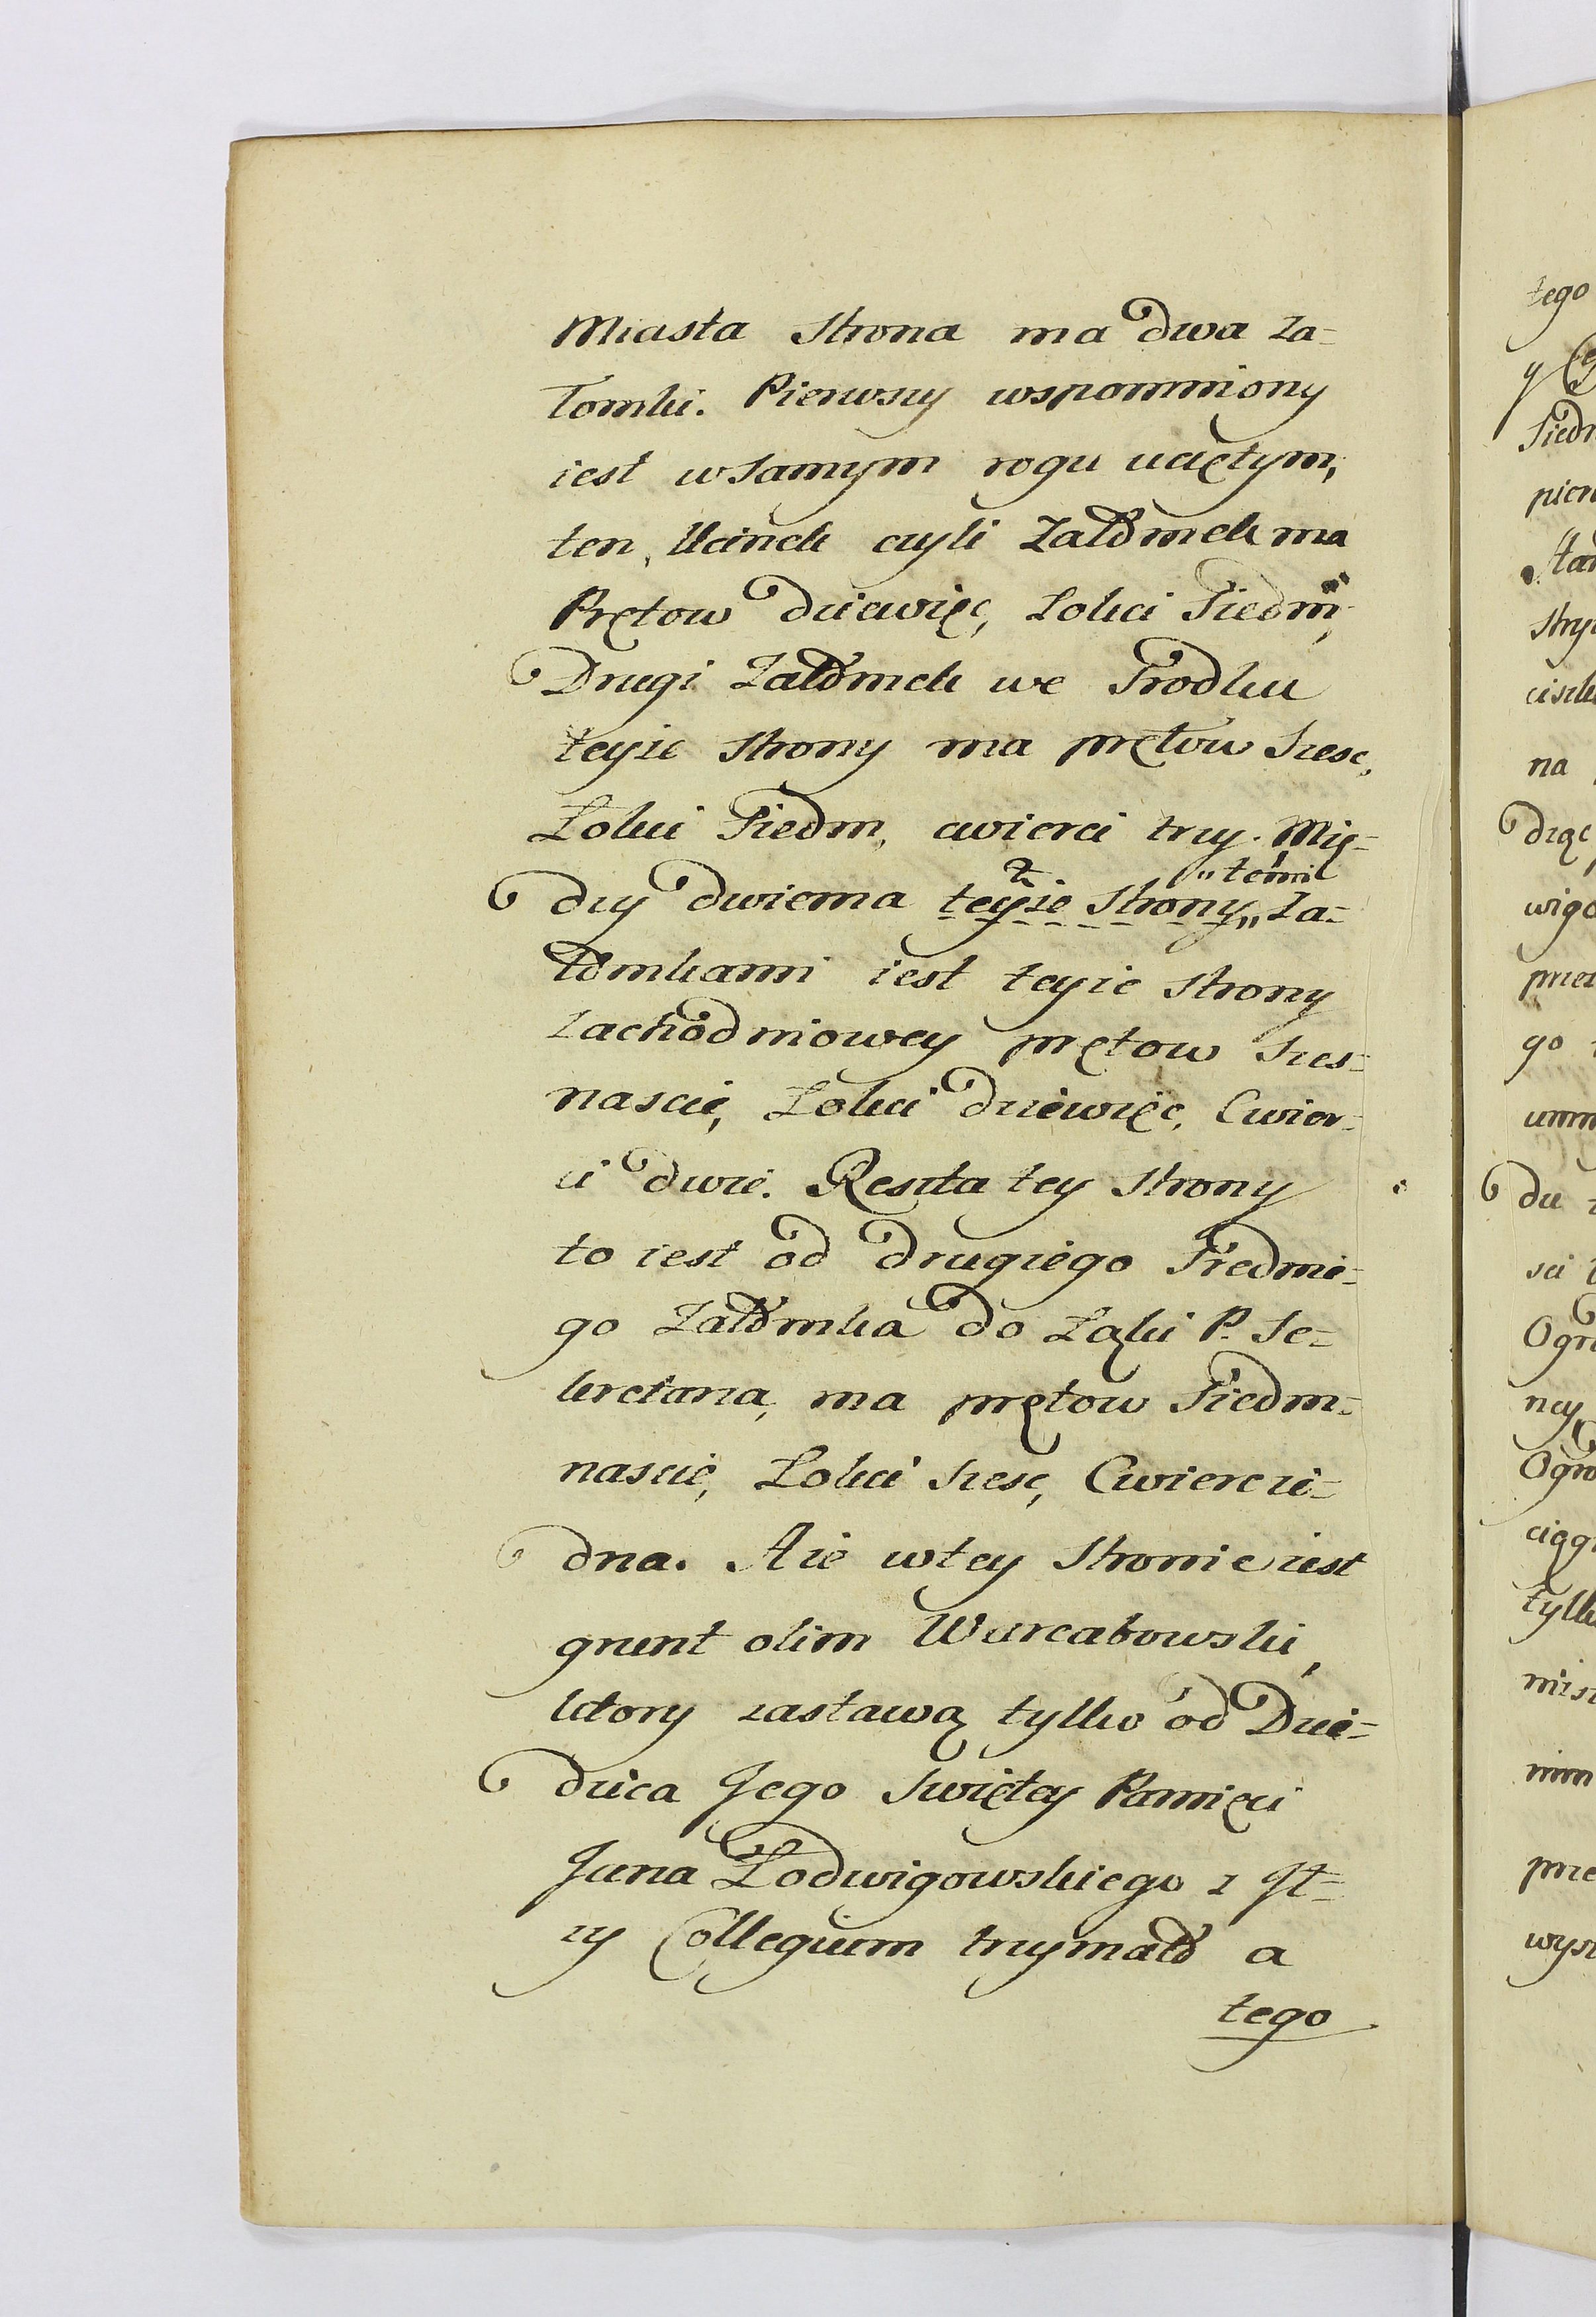 Miasta Strona ma dwa Za=
łomki. Pierwszy wspomniony
iest w samym rogu uciętym,
ten, Ucinek czyli Załomek ma
Prętow dziewięc, Łokci Siedm,
Drugi Załomek we Srodku
teyze Strony ma prętow Szesc,
Łokci Siedm, cwierci trzy. Mię=
dzy dwiema teyze Strony „ Za=
„ temi
łomkami iest teyze Strony
Zachodniowey prętow Szes=
nascie, Łokci dziewięc, Cwier=
ci dwie. Reszta tey Strony
to iest od drugiego Srednie=
go Załomka do Łąki P. Se=
kretarza, ma prętow Siedm=
nascie, Łokci Szesc, Cwierc ie=
dna. A ze w tey Stronie iest
grunt olim Warcabowski,
ktory zastawą tylko od Dzie=
dzica Jego Swiętey Pamięci
Jana Łodwigowskiego z Jt=
zy Collegium trzymało a
tego
tego
y
Siedm
na
wigo
go
du
sci
Ogro
ney
Ogro
ciąg
tylk
nim
prze
wysz